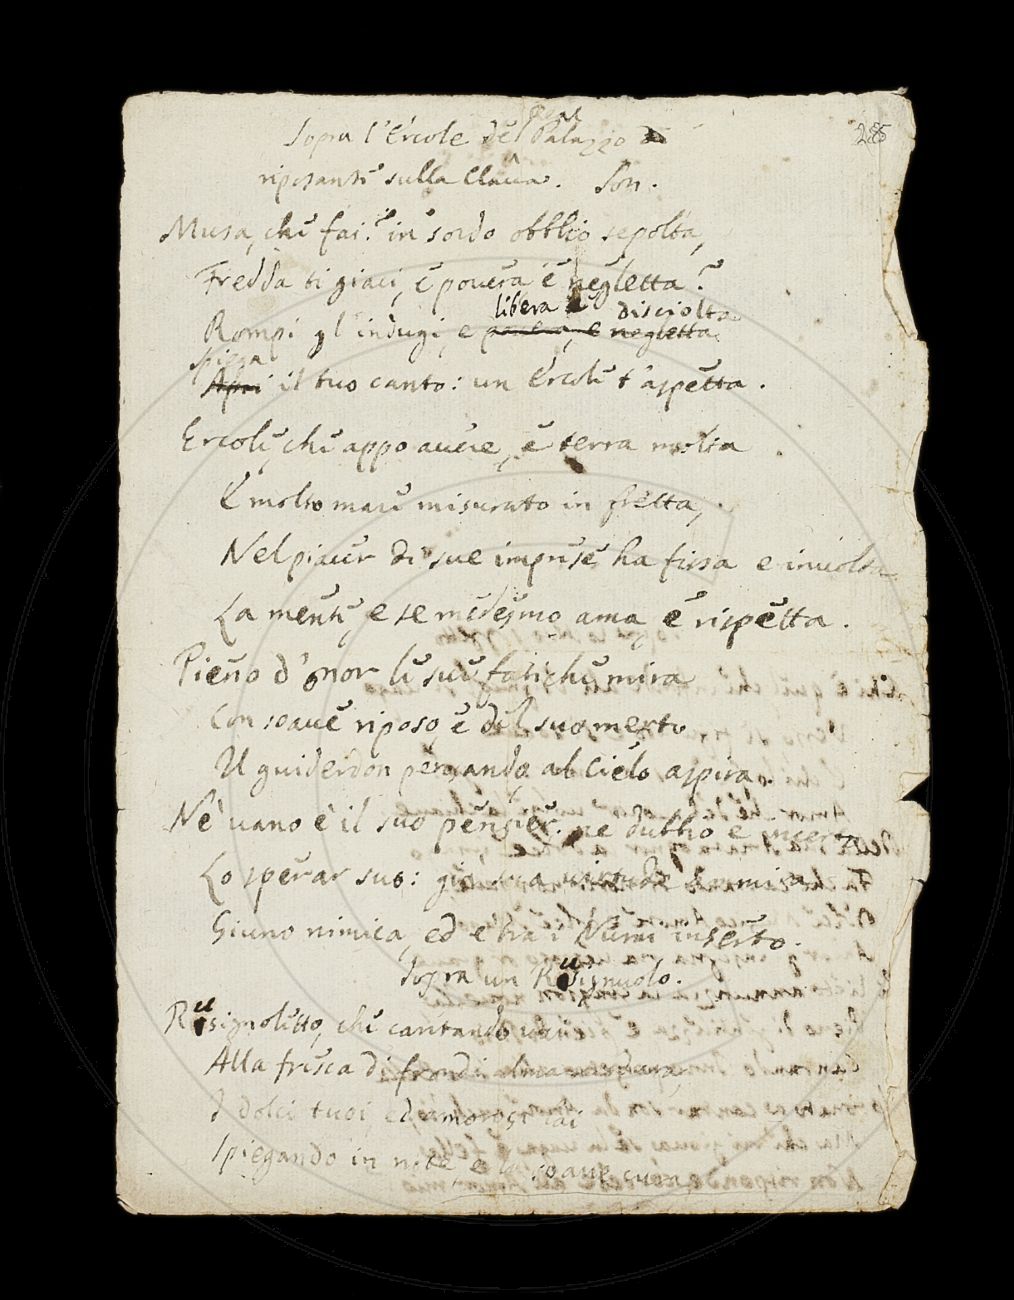 285
Real
Sopra l'Ercole del Palazzo di
riposante sulla Clava. Son.
Musa, che fai? in sordo obblio sepolta,
Fredda ti giaci, e povera e negletta?
libera e disciolta
Rompi gl'indugi, e povera, e negletta
Spiega
Apri il tuo canto: un Ercole t'aspetta.
Ercole, che appo avere, e terra molta
E molto mare misurato in fretta,
Nel piacer di sue imprese ha fissa e involta
La mente, e se medesmo ama e rispetta.
Pieno d'onor le sue fatiche mira
Con soave riposo e del suo merto
Il guiderdon pensando al Cielo aspira.
Nè vano è il suo pensier, ne dubbio e incerto
Lo sperar suo: già sua virtude ammira
Giuno nimica, ed è tra i Numi inserto.
Sopra un Rusignuolo.
Rusignoletto, che cantando vai
Alla fresca di frondi
I dolci tuoi, ed amorosi lai
Spiegando in note e la soave cura